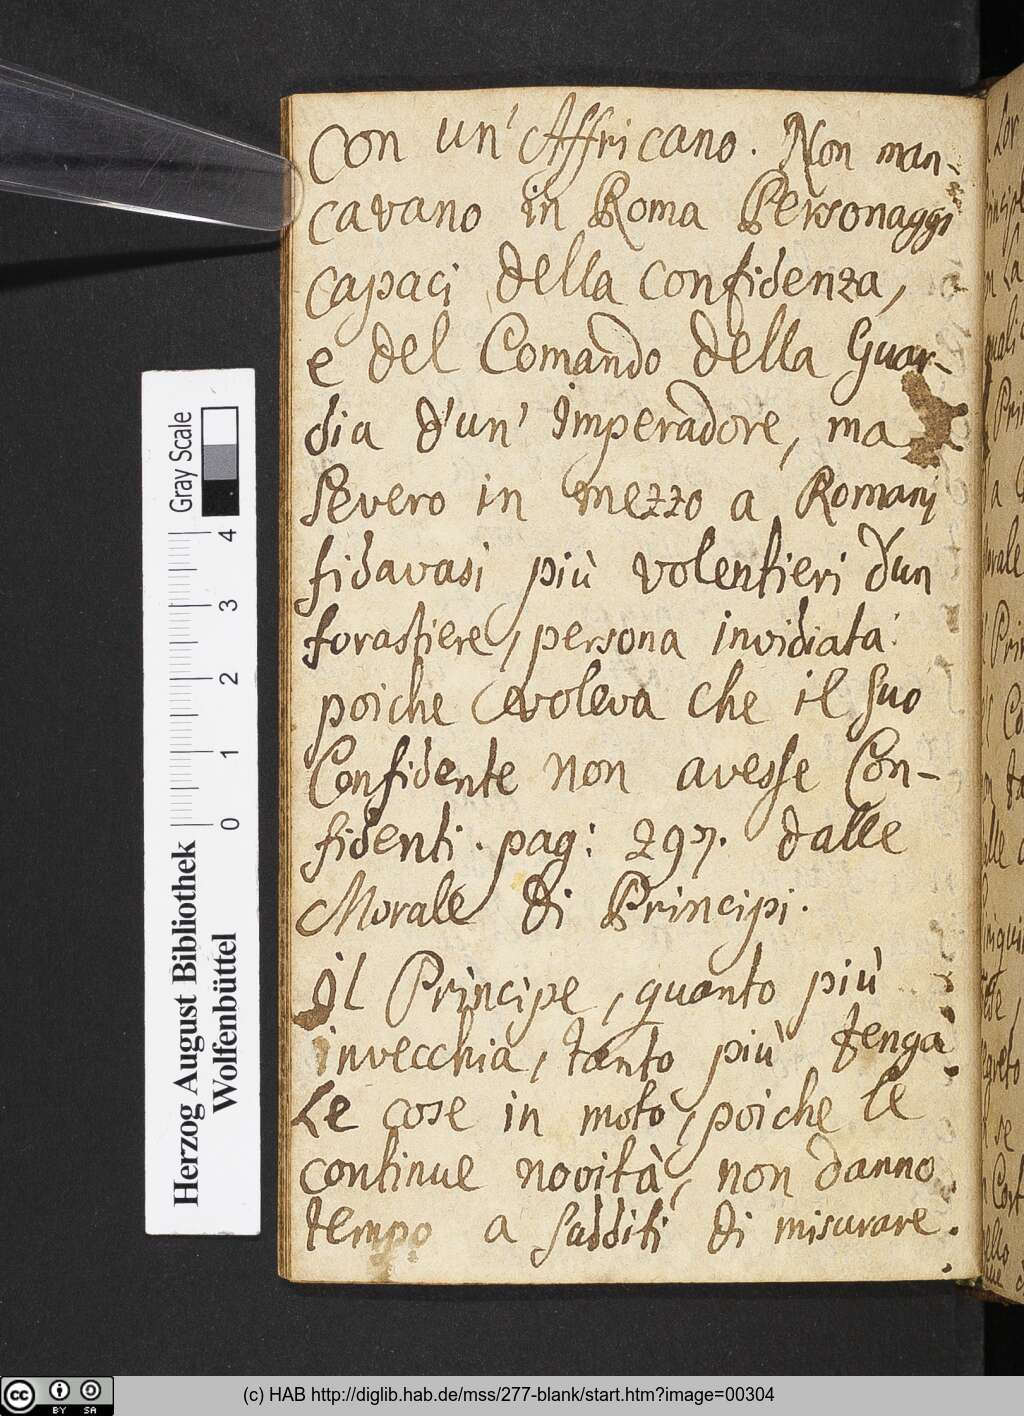 con un' Affricano. Non man-
cavano in Roma Personaggi
capaci della confidenza,
e del Comando della Guar-
dia d'un' Imperadore, ma
Severo in mezzo a Romani
fidavasi più volentieri d'un
forastiere, persona invidiata:
poiche voleva che il suo
Confidente non avesse Con-
fidenti. pag: 297. dalle
Morale di Principi.
il Principe, quanto più
invecchia, tanto più tenga
le cose in moto, poiche le
continue novità, non danno
tempo a sudditi di misurare.
Gray Scale
0 1 2 3 4
Herzog August Bibliothek
Wolfenbüttel
cc BY SA
(c) HAB http://diglib.hab.de/mss/277-blank/start.htm?image=00304